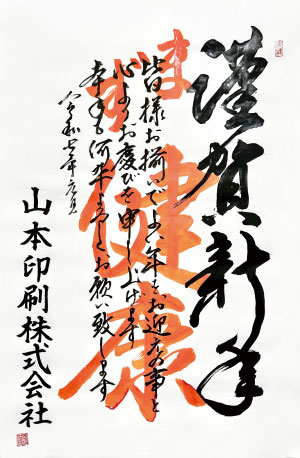 謹賀新年
まず健康
皆様お揃いでよい年をお迎えの事と
心よりお慶びを申し上げます
本年も何卒よろしくお願い致します
令和七年元旦
山本印刷株式会社